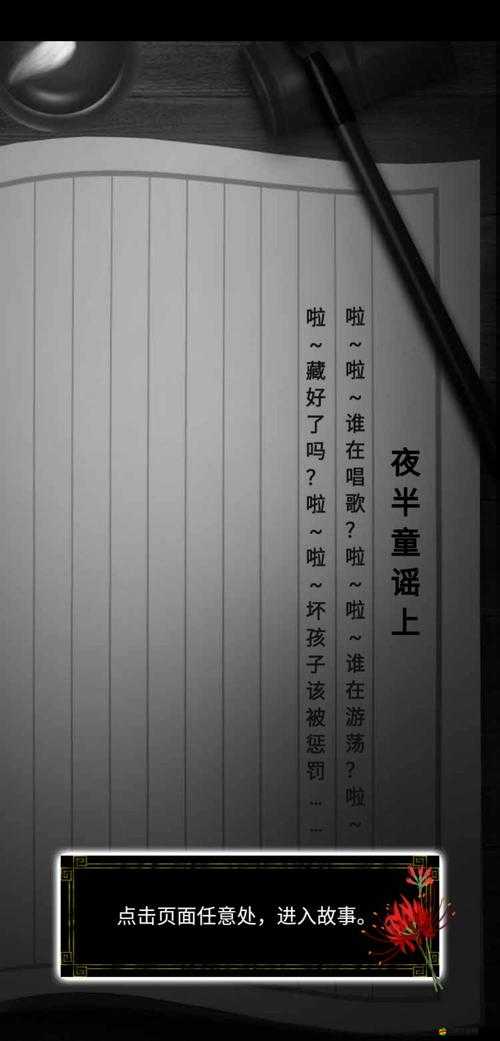 夜半童谣上
啦~啦~谁在唱歌？啦~啦~谁在游荡？啦~
啦~藏好了吗？啦~啦~坏孩子该被惩罚……
点击页面任意处，进入故事。